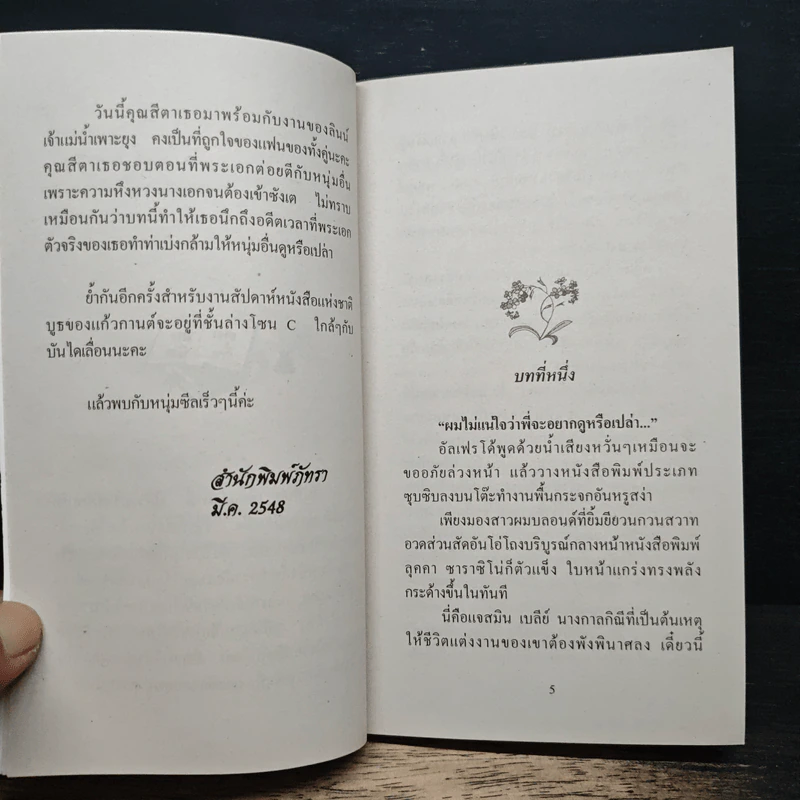 วันนี้คุณสีตาเธอมาพร้อมกับงานของลินน์
เจ้าแม่น้ำเพาะยุง คงเป็นที่ถูกใจของแฟนของทั้งคู่นะคะ
คุณสีตาเธอชอบตอนที่พระเอกต่อยตีกับหนุ่มอื่น
เพราะความหึงหวงนางเอกจนต้องเข้าซังเต ไม่ทราบ
เหมือนกันว่าบทนี้ทำให้เธอนึกถึงอดีตเวลาที่พระเอก
ตัวจริงของเธอทำท่าเบ่งกล้ามให้หนุ่มอื่นดูหรือเปล่า
ย้ำกันอีกครั้งสำหรับงานสัปดาห์หนังสือแห่งชาติ
บูธของแก้วกานต์จะอยู่ที่ชั้นล่างโซน C ใกล้ๆกับ
บันไดเลื่อนนะคะ
แล้วพบกับหนุ่มซีลเร็วๆนี้ค่ะ
สำนักพิมพ์ภัทรา
มี.ค. 2548
บทที่หนึ่ง
"ผมไม่แน่ใจว่าพี่จะอยากดูหรือเปล่า..."
อัลเฟรโด้พูดด้วยน้ำเสียงหวั่นๆเหมือนจะ
ขออภัยล่วงหน้า แล้ววางหนังสือพิมพ์ประเภท
ซุบซิบลงบนโต๊ะทำงานพื้นกระจกอันหรูสง่า
เพียงมองสาวผมบลอนด์ที่ยิ้มยียวนกวนสวาท
อวดส่วนสัดอันโอ่โถงบริบูรณ์กลางหน้าหนังสือพิมพ์
ลุคคา ซาราซิโน่ก็ตัวแข็ง ใบหน้าแกร่งทรงพลัง
กระด้างขึ้นในทันที
นี่คือแจสมิน เบลีย์ นางกาลกิณีที่เป็นต้นเหตุ
ให้ชีวิตแต่งงานของเขาต้องพังพินาศลง เดี๋ยวนี้
5